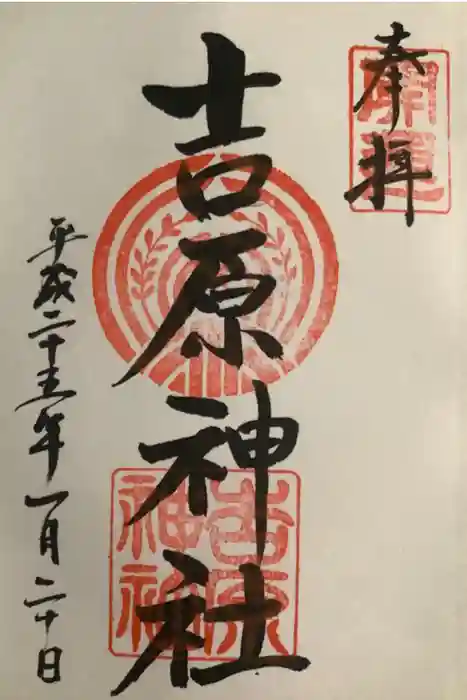 奉拝
吉原神社
平成二十五年一月二十日
吉原
神社